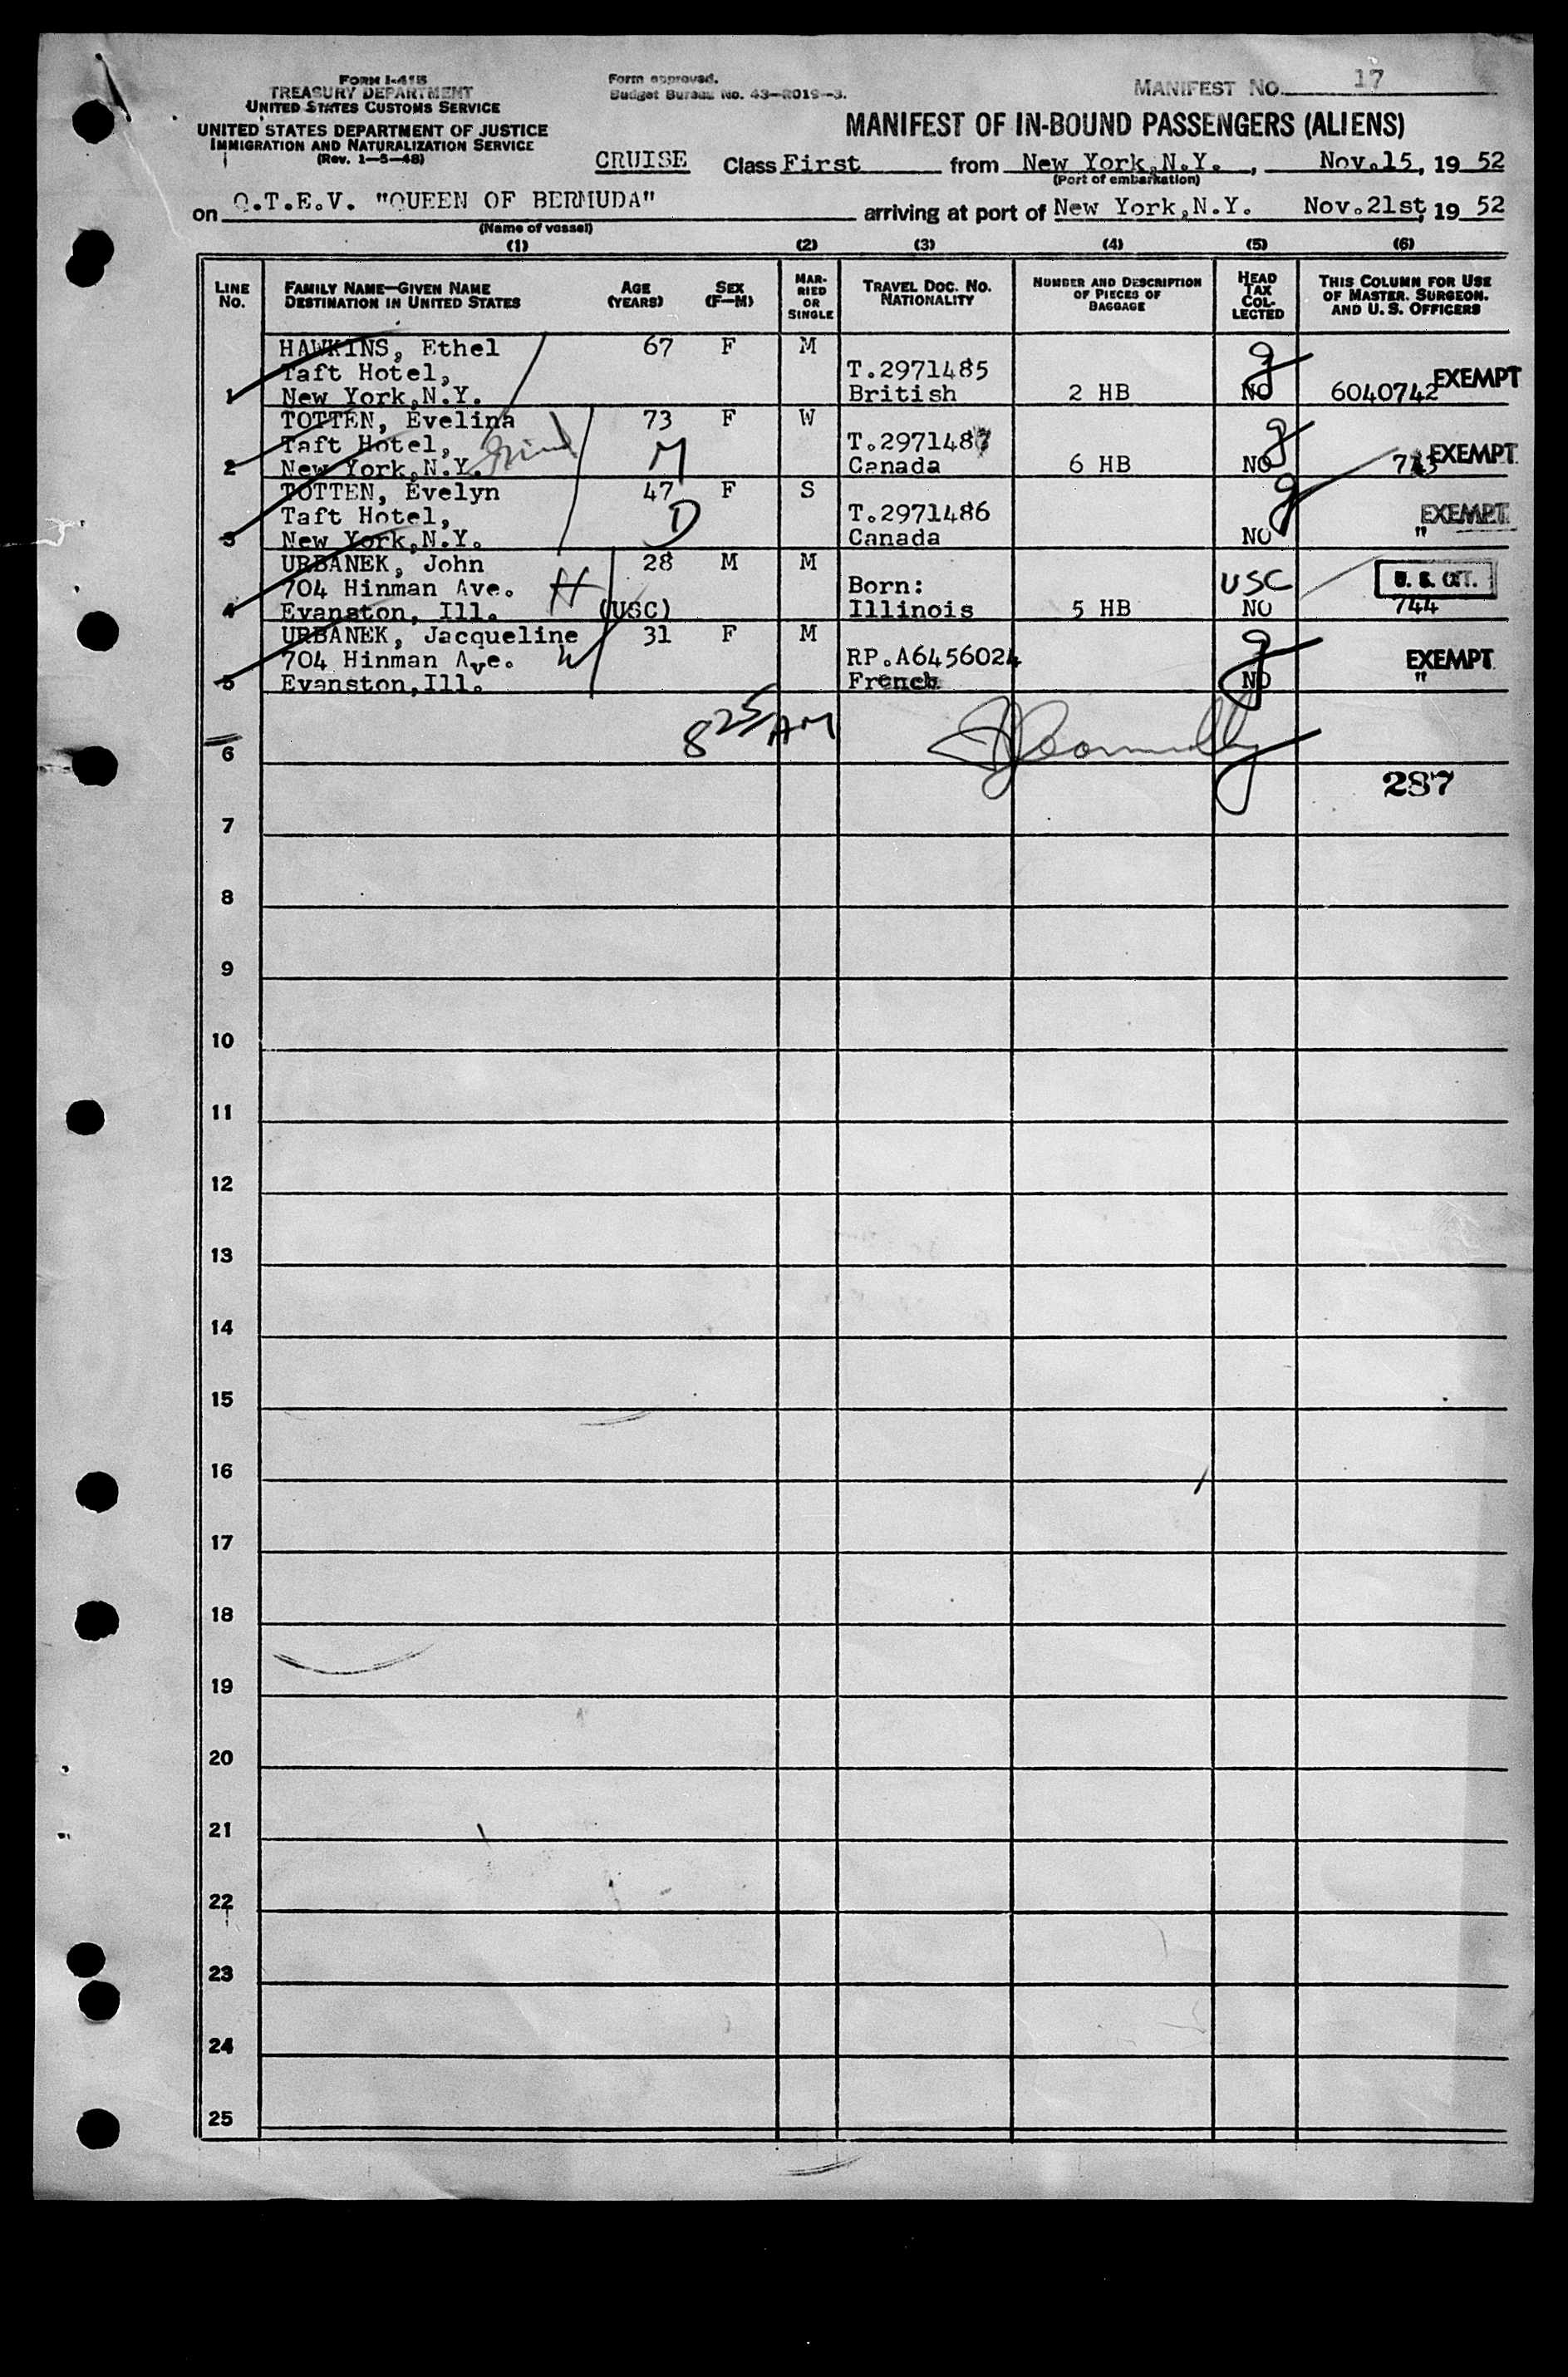 FORM I-415
TREASURY DEPARTMENT
UNITED STATES CUSTOMS SERVICE
UNITED STATES DEPARTMENT OF JUSTICE
IMMIGRATION AND NATURALIZATION SERVICE
(Rev. 1-5-48)
Form approved.
Budget Bureau No. 43-R019-3.
MANIFEST NO. 17
MANIFEST OF IN-BOUND PASSENGERS (ALIENS)
CRUISE Class First from New York,N.Y., Nov.15, 19 52
(Port of embarkation)
on Q.T.E.V. "QUEEN OF BERMUDA" arriving at port of New York,N.Y. Nov.21st, 19 52
(Name of vessel)
(1) (2) (3) (4) (5) (6)
LINE No. FAMILY NAME—GIVEN NAME DESTINATION IN UNITED STATES AGE (YEARS) SEX (F—M) MARRIED OR SINGLE TRAVEL DOC. NO. NATIONALITY NUMBER AND DESCRIPTION OF PIECES OF BAGGAGE HEAD TAX COLLECTED THIS COLUMN FOR USE OF MASTER, SURGEON, AND U. S. OFFICERS
HAWKINS, Ethel 67 F M
Taft Hotel, T.2971485
1 New York,N.Y. British 2 HB NO 6040742 EXEMPT
TOTTEN, Evelina 73 F W
Taft Hotel, M T.2971487
2 New York,N.Y. Canada 6 HB NO 743 EXEMPT
TOTTEN, Evelyn 47 F S
Taft Hotel, D T.2971486 EXEMPT
3 New York,N.Y. Canada NO "
URBANEK, John 28 M M
704 Hinman Ave. H Born: USC U. S. CIT.
4 Evanston, Ill. (USC) Illinois 5 HB NO 744
URBANEK, Jacqueline 31 F M
704 Hinman Ave. W RP.A6456024 EXEMPT
5 Evanston,Ill. French NO "
8 25 AM
6
287
7
8
9
10
11
12
13
14
15
16
17
18
19
20
21
22
23
24
25